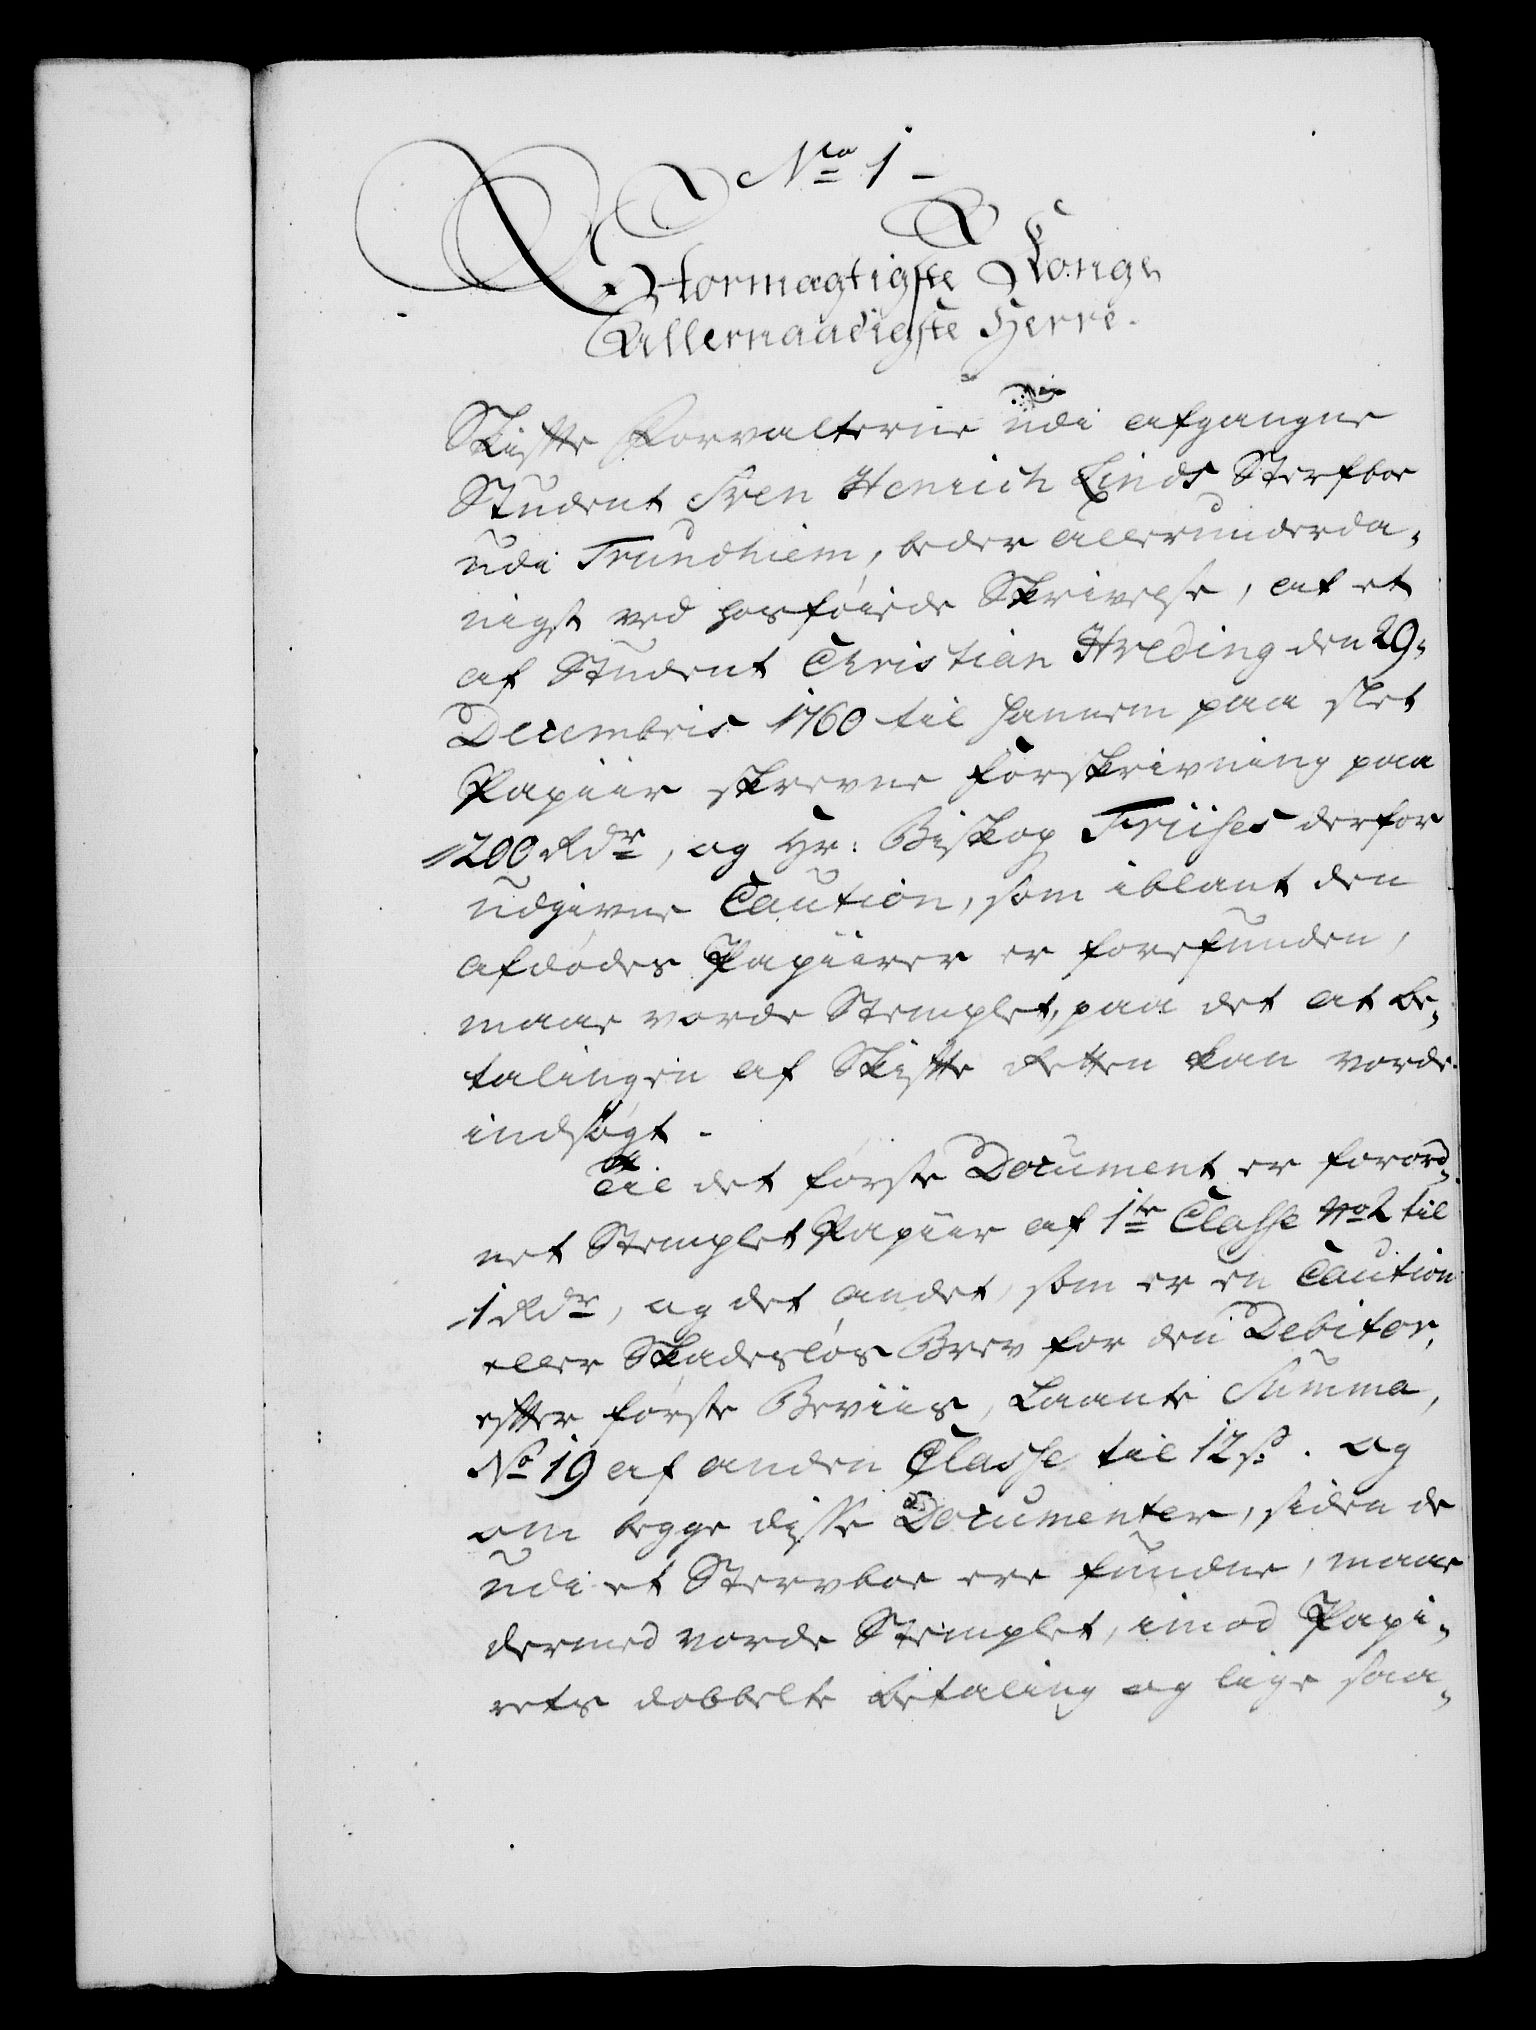 No 1 -
Stormagtigste Konge
Allernaadigste Herre.
Skifte Forvalterne udi afgangne
Student Sven Henrich Linds Sterfboe
udi Trundhiem, beder allerunderda-
nigst ved hosföiede Skrivelse, at et
af Student Christian Hveding den 29.
Decembris 1760 til hannem paa slet
Papiir skrevne Forskrivning paa
200 Rdr, og Hr: Biskop Friises derfor
udgivne Caution, som iblant den
afdödes Papiirer er forefunden,
maae vorde Stemplet, paa det at be-
talingen af Skifte Retten kan vorde
indsögt.
Til det förste Document er forord-
net Stemplet Papiir af 1te Classe No 2 til
1 Rdr, og det andet, som er en Caution
eller Skadeslös Brev for den Debitor,
efter förste Beviis, Laante Summa,
No 19 af anden Classe til 12 s. og
om begge disse Documenter, siden de
udi et Stervboe ere fundne, maae
dermed vorde Stemplet, imod Papi-
rets dobbelte betaling og lige saa-